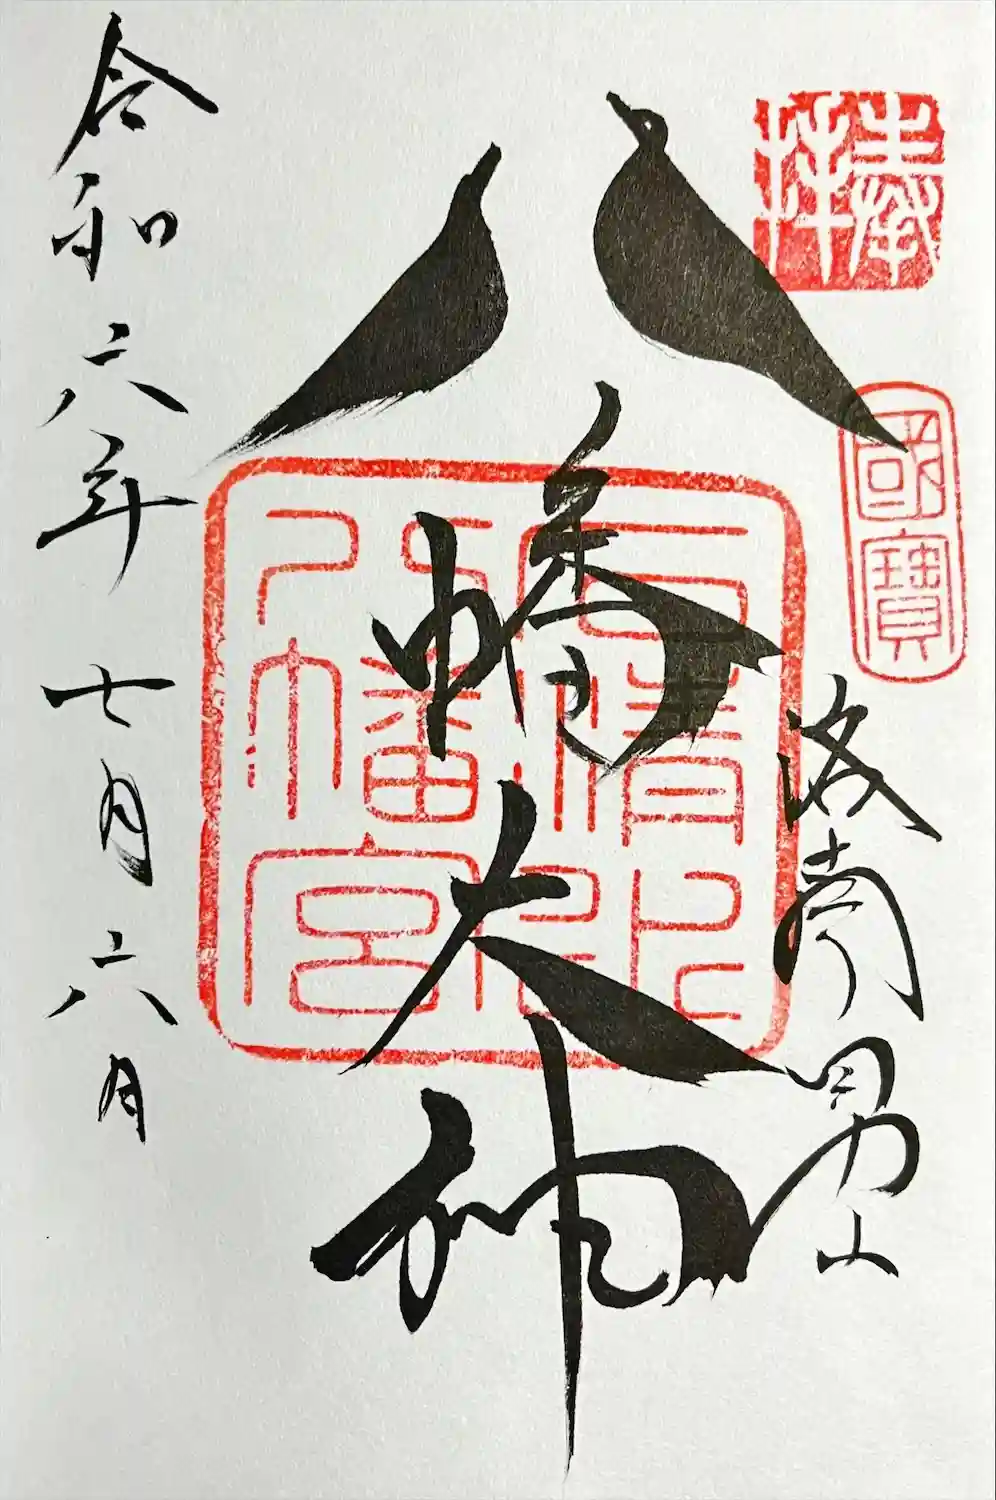 奉拝
國寶
洛南男山
八幡大神
石清水八幡宮
令和六年七月六月